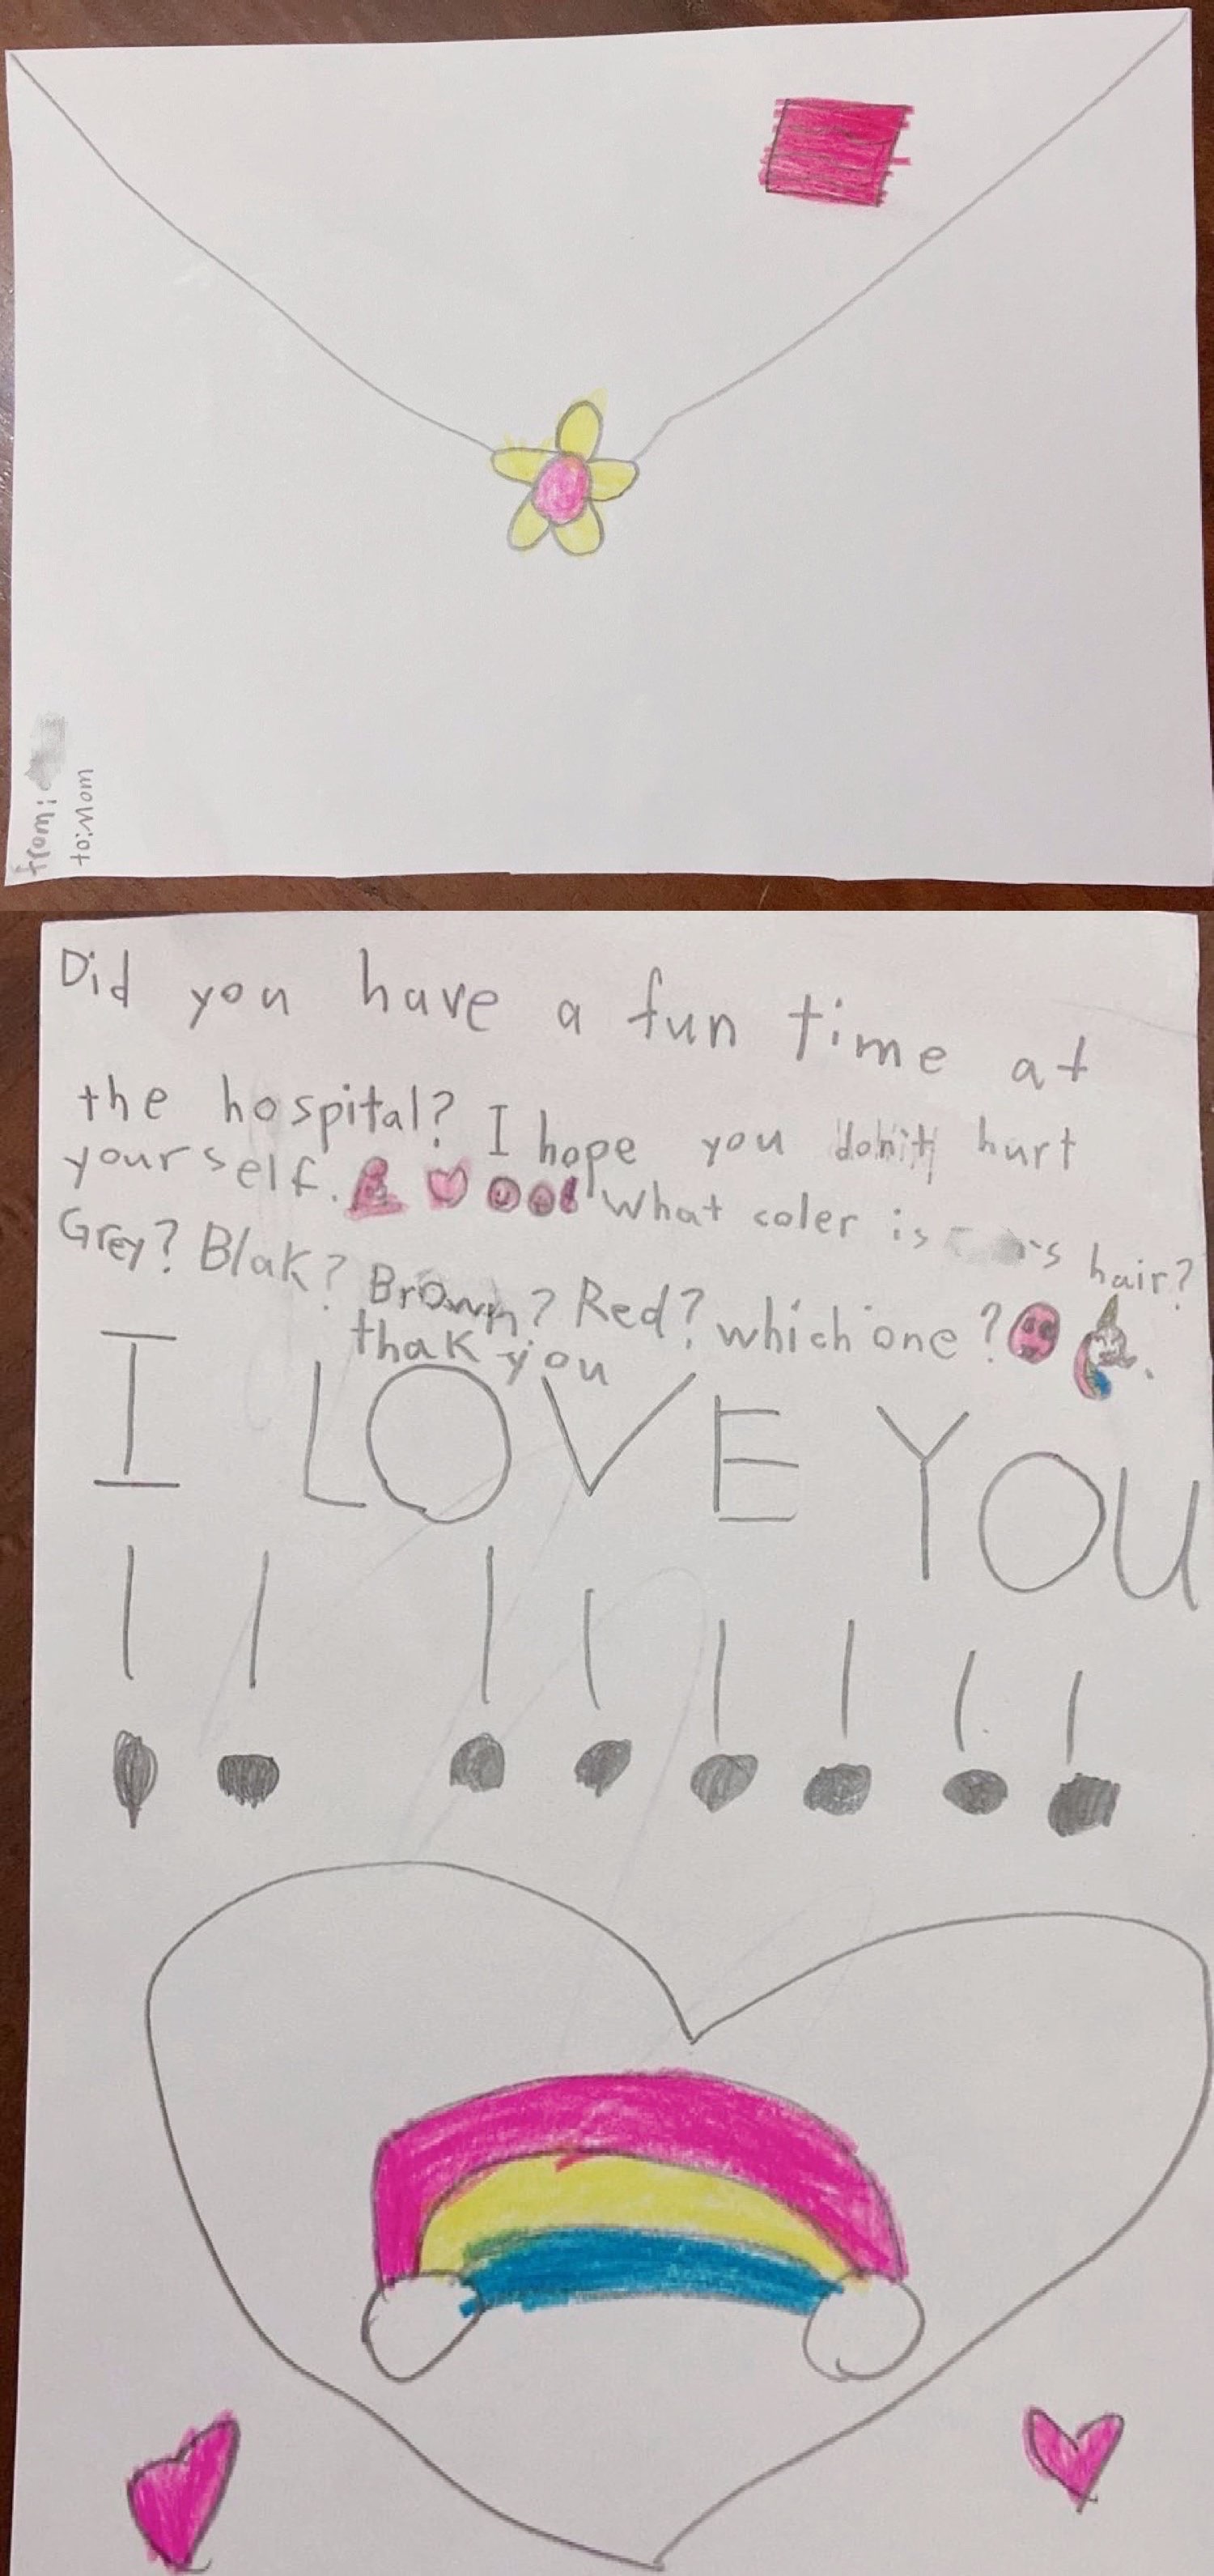 from:
to: Mom
Did you have a fun time at
the hospital? I hope you don't hurt
yourself. What coler is 's hair?
Grey? Blak? Brown? Red? which one?
thak you
I LOVE YOU
!!!!!!!!